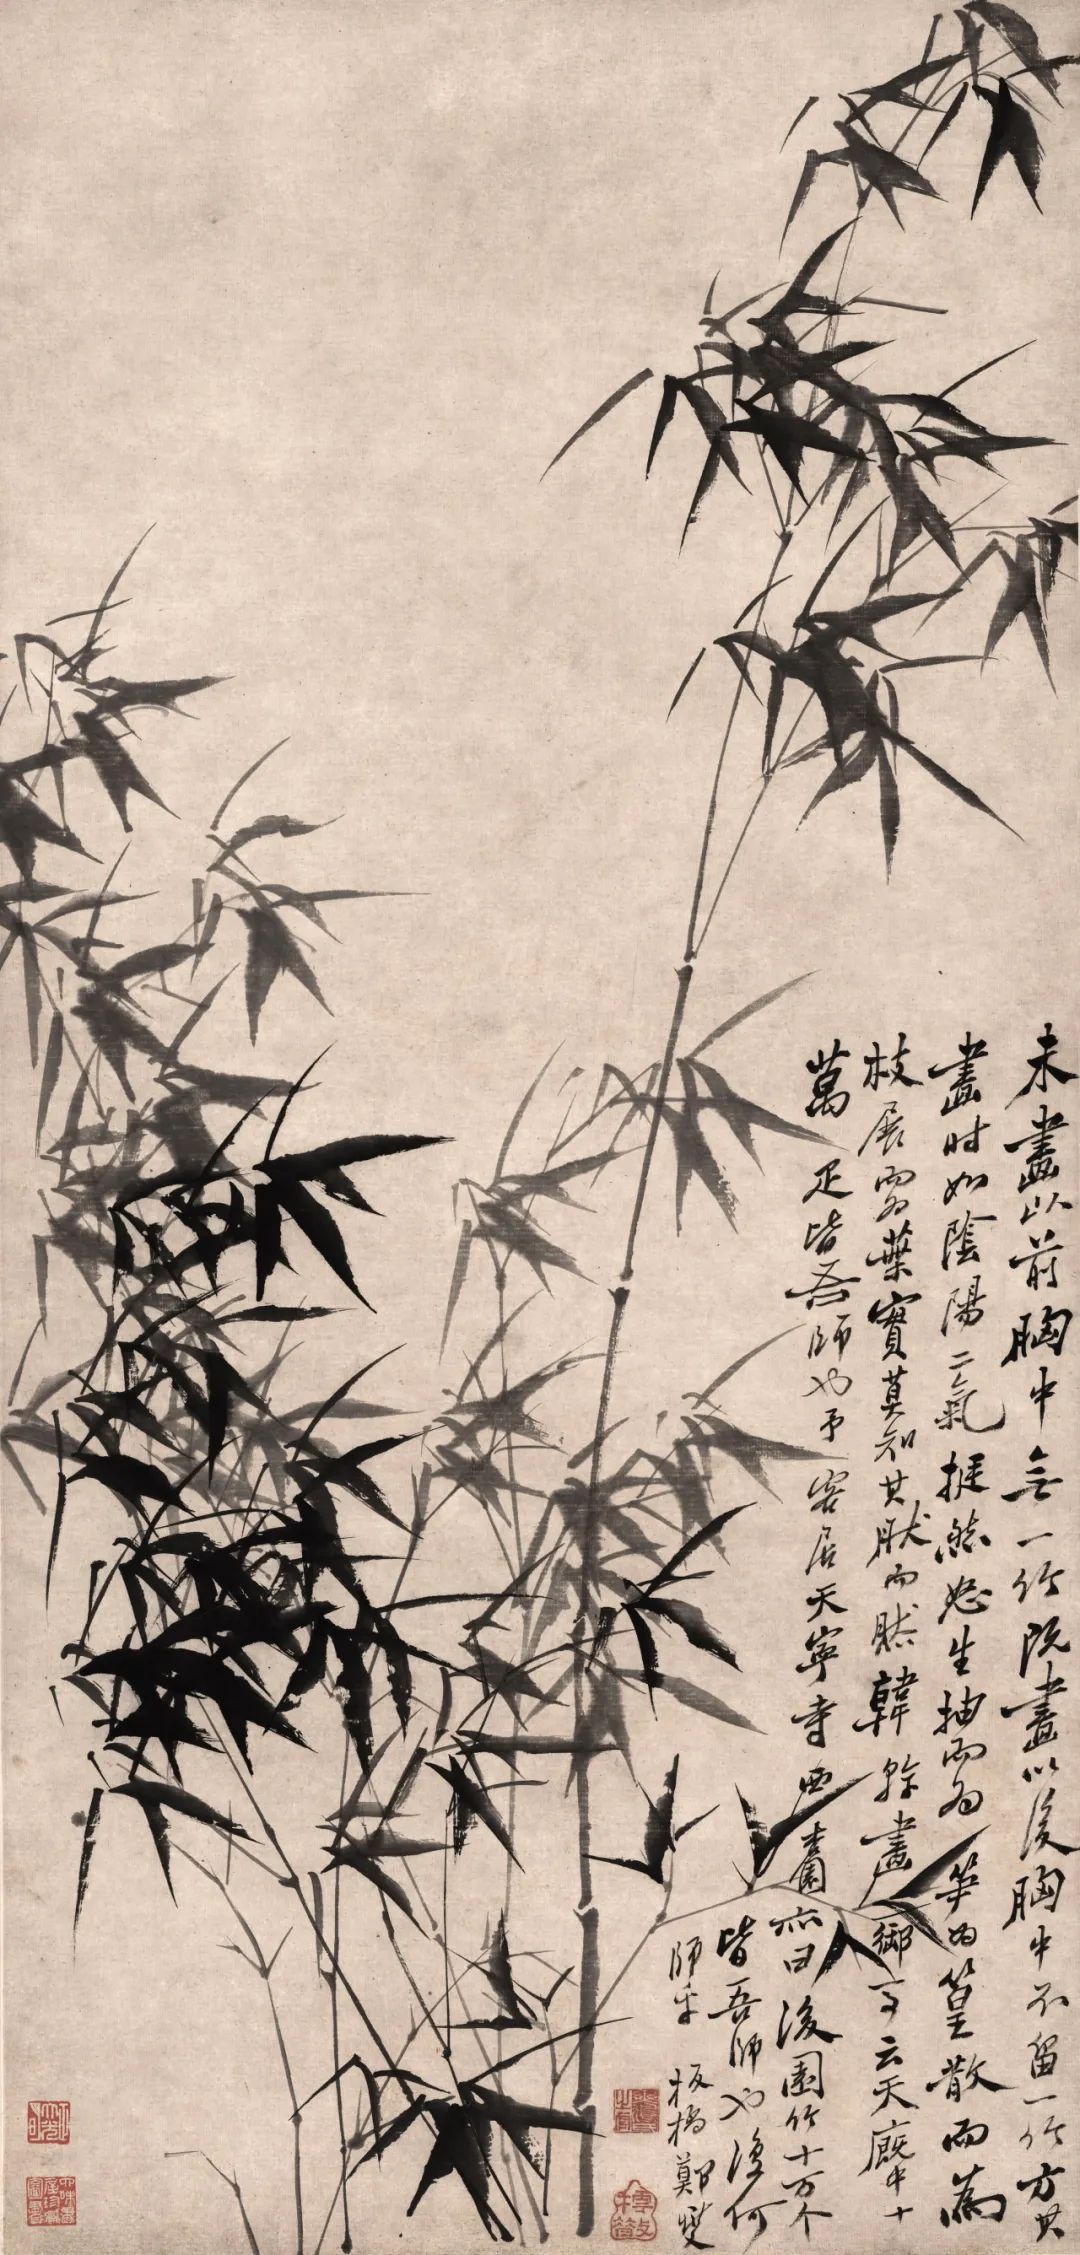 未畫以前胸中無一竹既畫以後胸中不留一竹方其
畫時如陰陽二氣挺然怒生抽而為笋為篁散而為
枝展而為葉實莫知其然而然韓幹畫御馬云天廐中十
萬疋皆吾師也予客居天寧寺西杏園亦曰後園竹十万个
皆吾師也復何
師乎 板橋鄭燮
樗散